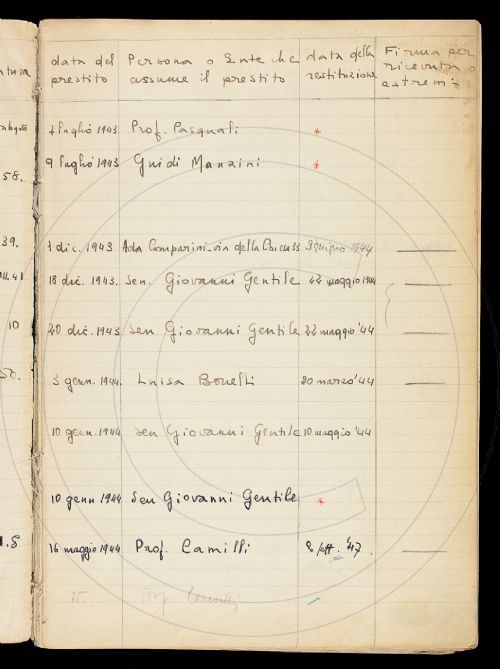 data del prestito Persona o Ente che assume il prestito data della restituzione Firma per ricevuta o estremi
4 luglio 1943 Prof. Pasquali *
58.
9 luglio 1943 Guidi Manzini *
39.
1 dic. 1943 Ada Comparini via della 3 giugno 1944 —
18 dic. 1943. Sen. Giovanni Gentile 22 maggio 1944 —
10
20 dic. 1943 Sen Giovanni Gentile 22 maggio '44 —
50.
3 genn. 1944. Luisa Bonelli 20 marzo '44 —
10 genn. 1944 Sen Giovanni Gentile 10 maggio '44
10 genn 1944 Sen Giovanni Gentile *
16 maggio 1944 Prof. Camilli 2 sett. '47. —
Prof. Camilli